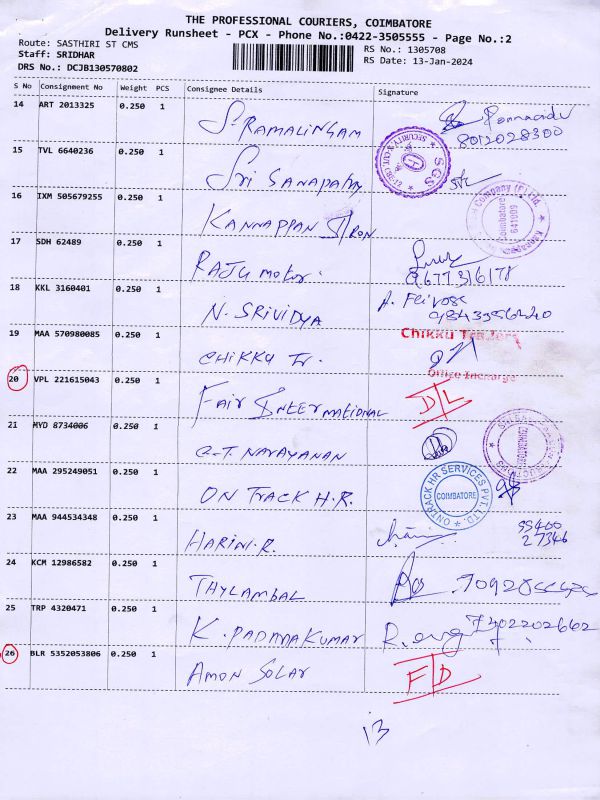 THE PROFESSIONAL COURIERS, COIMBATORE
Delivery Runsheet - PCX - Phone No.:0422-3505555 - Page No.:2
Route: SASTHIRI ST CMS
Staff: SRIDHAR
DRS No.: DCJB130570802
RS No.: 1305708
RS Date: 13-Jan-2024
S No Consignment No Weight PCS Consignee Details Signature
14 ART 2013325 0.250 1 S. RAMALINGAM
8012028300
15 TVL 6640236 0.250 1 Sri SANAPATHY
SGS
16 IXM 505679255 0.250 1 KANNAPPAN IRON
Company (P) Ltd.
Coimbatore
641009
17 SDH 62489 0.250 1 RAJU Motor.
9677316178
18 KKL 3160401 0.250 1 N. SRIVIDYA
19 MAA 570980085 0.250 1 CHIKKU Tr.
Chikku Traders
Office Incharge
20 VPL 221615043 0.250 1 FAIR INTERNATIONAL D/L
21 MYD 8734006 0.250 1 G.T. NARAYANAN
22 MAA 295249051 0.250 1 ON TRACK H.R.
ONTRACK HR SERVICES PVT. LTD.
COIMBATORE
23 MAA 944534348 0.250 1 HARINI.R.
24 KCM 12986582 0.250 1 THYLAMBAL
25 TRP 4320471 0.250 1 K. PADMAKUMAR
26 BLR 5352053806 0.250 1 AMON SOLAR F/D
13